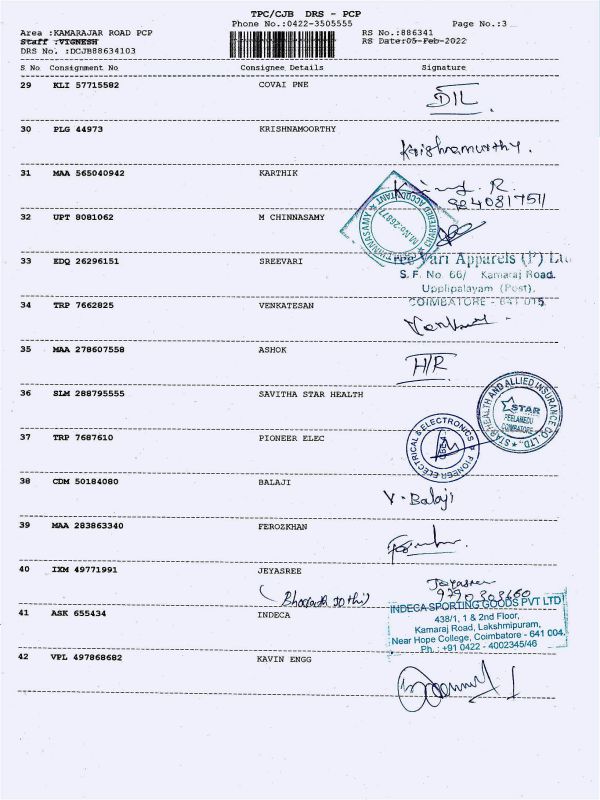 TPC/CJB DRS - PCP
Phone No.:0422-3505555
Page No.:3
Area :KAMARAJAR ROAD PCP
RS No.:886341
Staff :VIGNESH
RS Date:05-Feb-2022
DRS No. :DCJB88634103
S No Consignment No Consignee Details Signature
29 KLI 57715582 COVAI PNE
DIL
30 PLG 44973 KRISHNAMOORTHY
Krishnamurthy.
31 MAA 565040942 KARTHIK
R.
9840817511
CHARTERED ACCOUNTANT
32 UPT 8081062 M CHINNASAMY
33 EDQ 26296151 SREEVARI
Vari Apparels (P) Lt
S. F. No. 66/ Kamaraj Road.
Upplipalayam (Post),
COIMBATORE - 641 015
34 TRP 7662825 VENKATESAN
35 MAA 278607558 ASHOK
H/R
36 SLM 288795555 SAVITHA STAR HEALTH
STAR HEALTH AND ALLIED INSURANCE CO. LTD.,
STAR
PEELAMEDU
COIMBATORE
37 TRP 7687610 PIONEER ELEC
PIONEER ELECTRICAL & ELECTRONICS
38 CDM 50184080 BALAJI
V. Balaji
39 MAA 283863340 FEROZKHAN
40 IXM 49771991 JEYASREE
Jeyasree
9790303660
41 ASK 655434 INDECA
INDECA SPORTING GOODS PVT LTD
438/1, 1 & 2nd Floor,
Kamaraj Road, Lakshmipuram,
Near Hope College, Coimbatore - 641 004.
Ph. : +91 0422 - 4002345/46
42 VPL 497868682 KAVIN ENGG